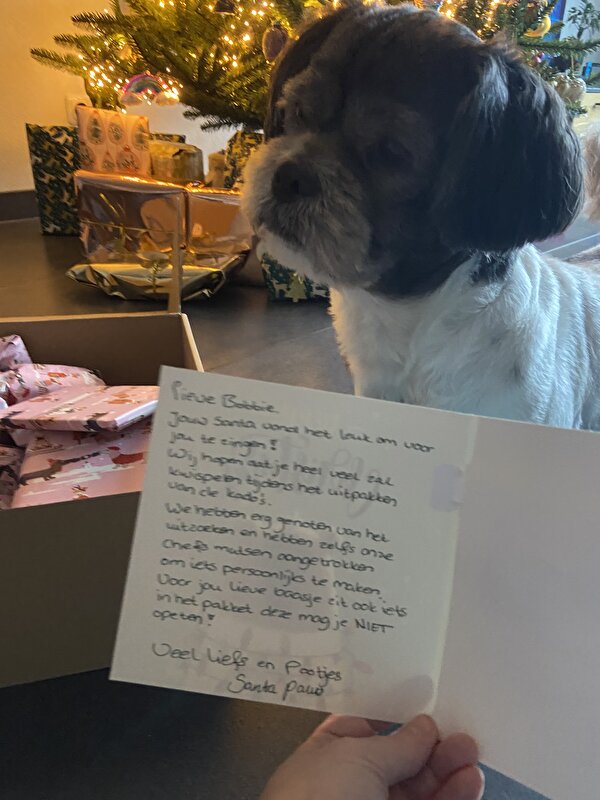 Lieve Bobbie.
Jouw Santa vond het leuk om voor
jou te zingen!
Wij hopen dat je heel veel zal
kwispelen tijdens het uitpakken
van de kado's.
We hebben erg genoten van het
uitzoeken en hebben zelfs onze
chefs mutsen aangetrokken
om iets persoonlijks te maken.
Voor jou lieve baasje zit ook iets
in het pakket deze mag je NIET
opeten!
Veel Liefs en Pootjes
Santa Paws